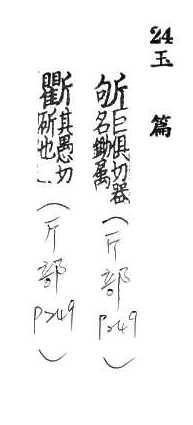 24 玉篇
斪 巨俱切器
名鋤属
(斤部 P249)
其愚切
斫也
(斤部 P249)